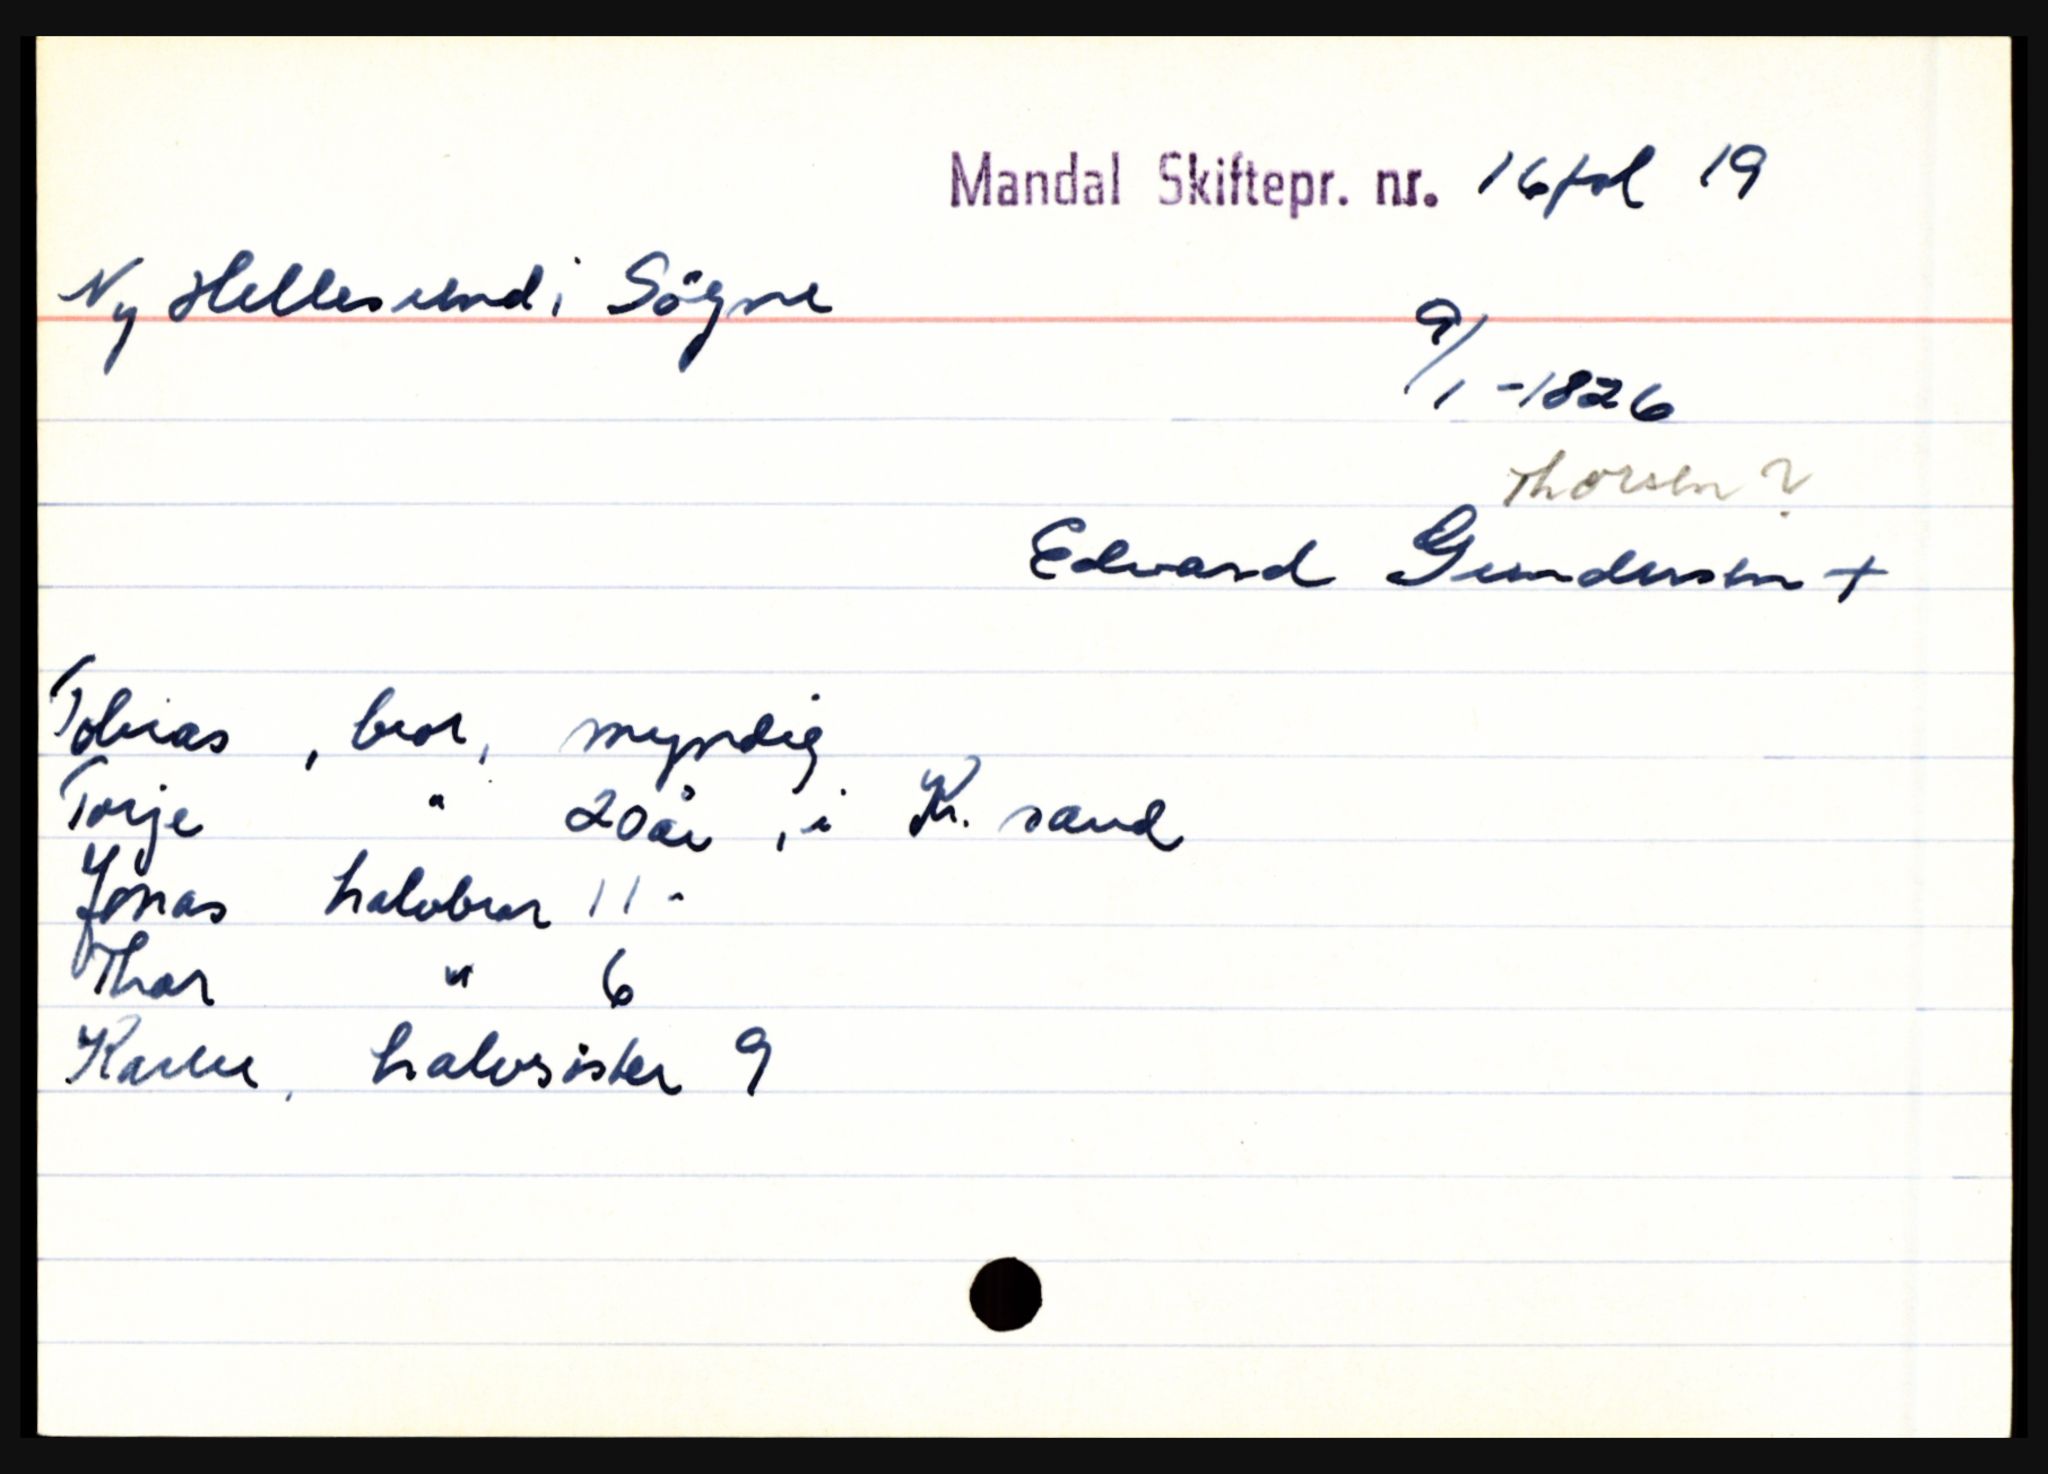 Mandal Skiftepr. nr. 16 fol 19
Ny Hellesund i Sögne
9/1 -1826
Thorsen?
Edvard Gundersen +
Tobias , bror, myndig
Torje " 20 år , i Kr. sand
Jonas halvbror 11 "
Thor " 6
Karen , halvsister 9